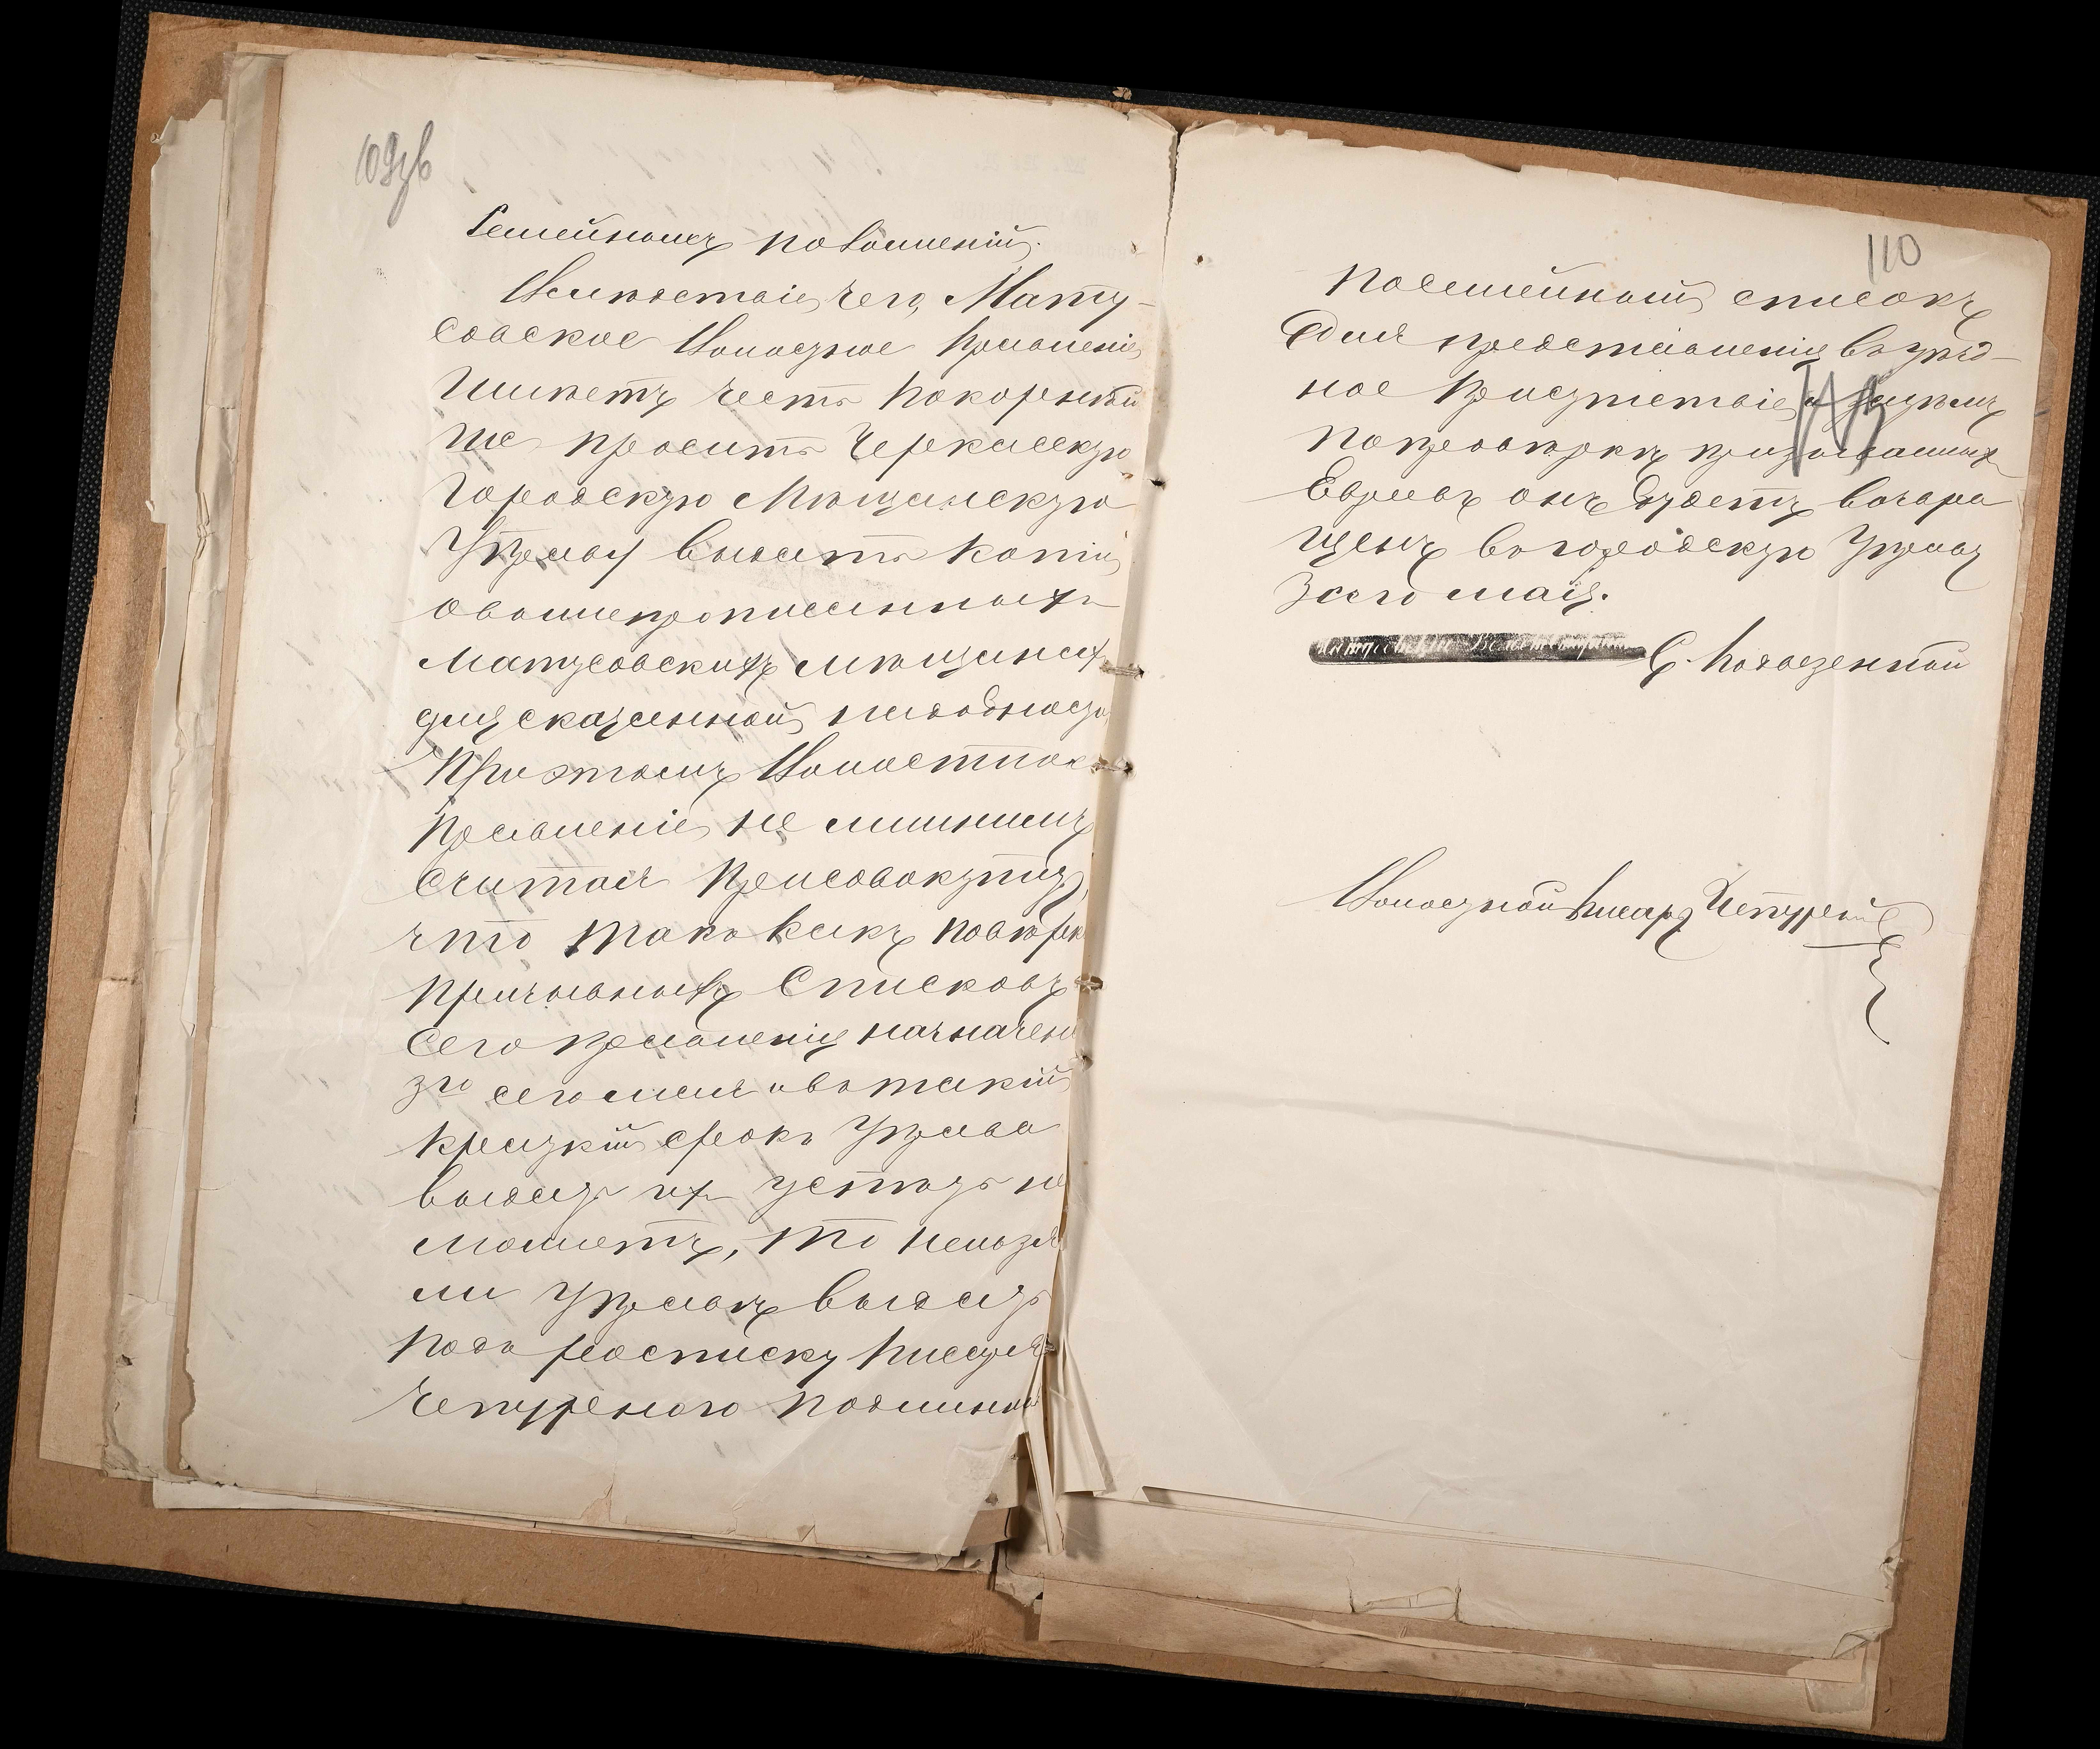 109об
Семейномъ положеніи.
Вслѣдствіе чего, Мату-
совское Волосное Правленіе
имѣетъ честь покорнѣй
ше просить Черкасскую
Городскую Мѣщанскую
Управу выдать копіи
овышепрописанныхъ
Матусовскихъ мѣщанах
для сказанной надобности
При этомъ Волостное
Правленіе не лишнимъ
считая присовокупить,
что такъ какъ повѣрк
призывныхъ Списковъ
сего Правленія назначен
3го сего мая и въ такій
краткій срокъ Управа
выдать ихъ успѣть не
можетъ, то нельзя
ли Управѣ выдать
подъ росписку писаря
Чепурного подлинный
110
посемейный списокъ
для представленія въ уѣзд-
ное Присутствіе и
по провѣркѣ призываемых
Евреевъ онъ будетъ возвра
щенъ въ городскую Управу
3сего мая.
С. Подвезенной
Волосной Писарь Чепурный